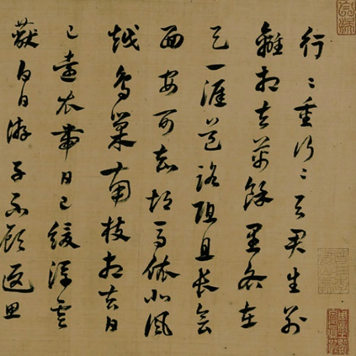 行〻重行〻与君生别
離相去萬餘里各在
天一涯道路阻且長會
面安可知胡馬依北風
越鳥巢南枝相去日
已遠衣帶日已緩浮雲
蔽白日游子不顧返思